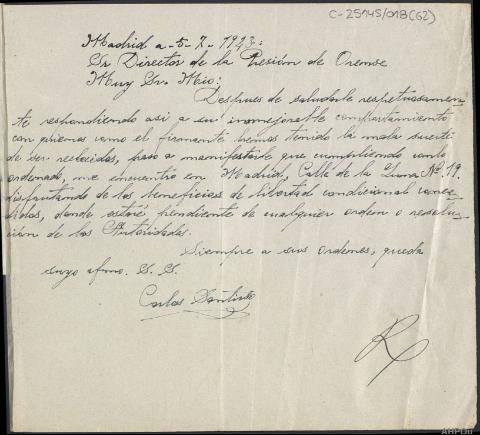 C-25145/018(62)
Madrid a-5-7-1943:
Sr Director de la Presión de Orense
Muy Sr. Mio:
Despues de saludarle respetuosamen-
te respondiendo asi a su inmejorable comportamiento
con quienes como el firmante hemos tenido la mala suerte
de ser recluidos, paso a manifestarle que cumpliendo con lo
ordenado, me encuentro en Madrid, Calle de la Luna Nº. 19.
disfrutando de los beneficios de libertad condicional conce-
didos, donde estaré pendiente de cualquier orden o resolu-
ción de las Autoridades.
Siempre a sus ordenes, queda
suyo afmo. S. S.
Carlos Santiuste